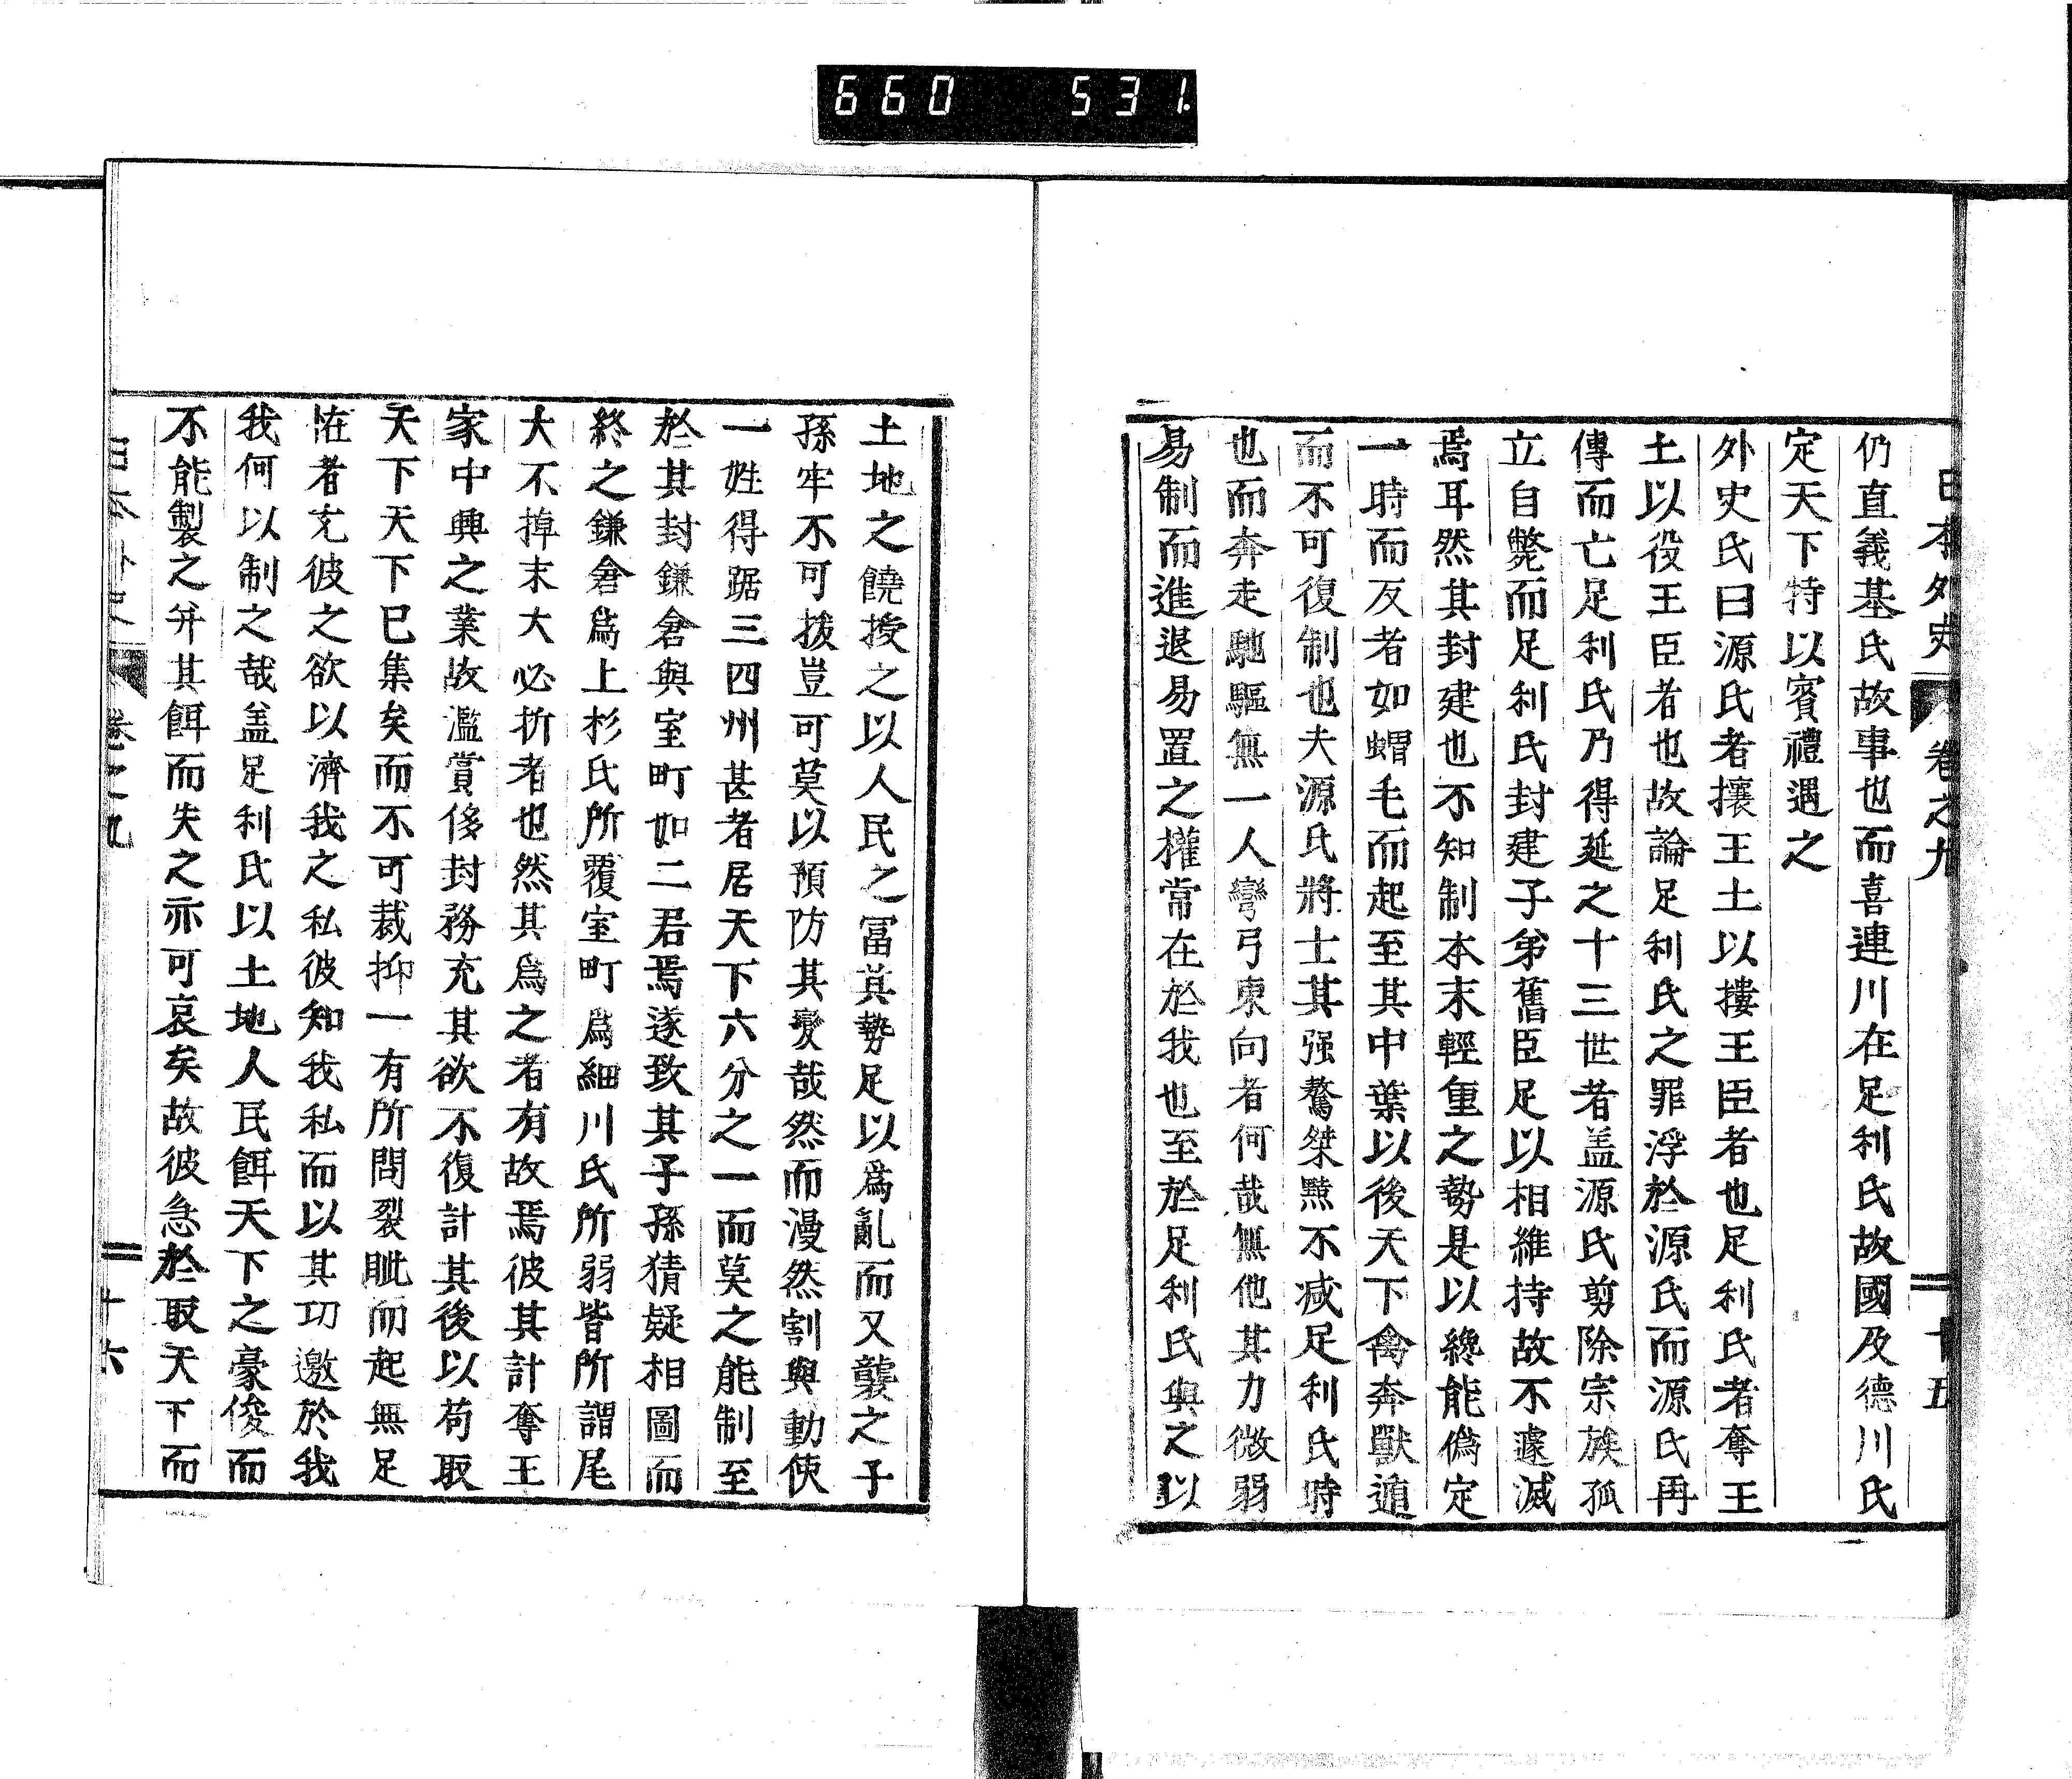 660 531.
日本外史 卷之九 十五
仍直義基氏故事也而喜連川在足利氏故國及德川氏
定天下特以賓禮遇之
外史氏曰源氏者攘王土以摟王臣者也足利氏者奪王
土以役王臣者也故論足利氏之罪浮於源氏而源氏再
傳而亡足利氏乃得延之十三世者盖源氏剪除宗族孤
立自斃而足利氏封建子弟舊臣足以相維持故不遽滅
焉耳然其封建也不知制本末輕重之勢是以纔能僞定
一時而反者如蝟毛而起至其中葉以後天下禽奔獸遁
而不可復制也夫源氏將士其强驁桀黠不減足利氏時
也而奔走馳驅無一人彎弓東向者何哉無他其力微弱
易制而進退易置之權常在於我也至於足利氏與之以
土地之饒授之以人民之冨其勢足以爲亂而又襲之子
孫牢不可拔豈可莫以預防其變哉然而漫然割與動使
一姓得踞三四州甚者居天下六分之一而莫之能制至
於其封鎌倉與室町如二君焉遂致其子孫猜疑相圖而
終之鎌倉爲上杉氏所覆室町爲細川氏所弱皆所謂尾
大不掉末大必折者也然其爲之者有故焉彼其計奪王
家中興之業故濫賞侈封務充其欲不復計其後以苟取
天下天下已集矣而不可裁抑一有所問裂眦而起無足
恠者充彼之欲以濟我之私彼知我私而以其功邀於我
我何以制之哉盖足利氏以土地人民餌天下之豪俊而
不能製之并其餌而失之亦可哀矣故彼急於取天下而
日本外史 卷之九 十六